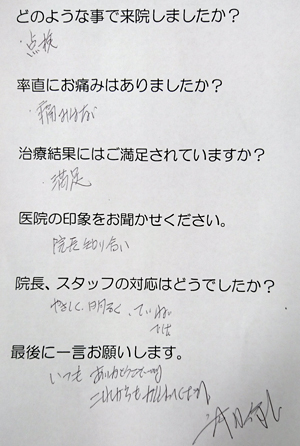 どのような事で来院しましたか？
・点検
率直にお痛みはありましたか？
・痛みはなし
治療結果にはご満足されていますか？
・満足
医院の印象をお聞かせください。
院長知り合い
院長、スタッフの対応はどうでしたか？
やさしく、明るく、ていねい
では
最後に一言お願いします。
いつも ありがとうございます
これからも